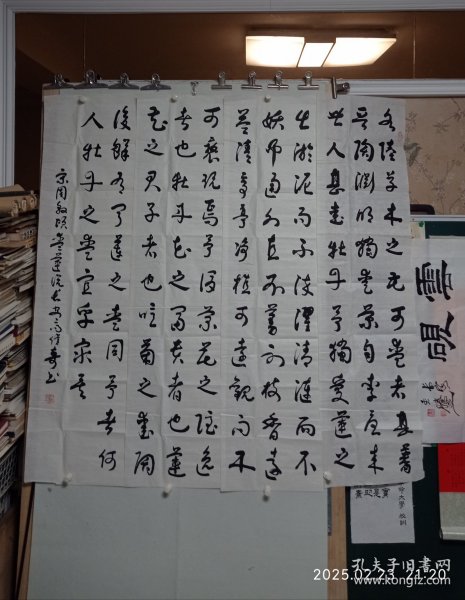 水陸草木之花可愛者甚蕃
晉陶淵明獨愛菊自李唐來
世人甚愛牡丹予獨愛蓮之
出淤泥而不染濯清漣而不
妖中通外直不蔓不枝香遠
益清亭亭淨植可遠觀而不
可褻玩焉予謂菊花之隱逸
者也牡丹花之富貴者也蓮
花之君子者也噫菊之愛陶
後鮮有聞蓮之愛同予者何
人牡丹之愛宜乎衆矣
宋周敦頤愛蓮説
書
雲硯
大學校訓
孔夫子旧书网
www.kongfz.com
2025.02.23 21:20